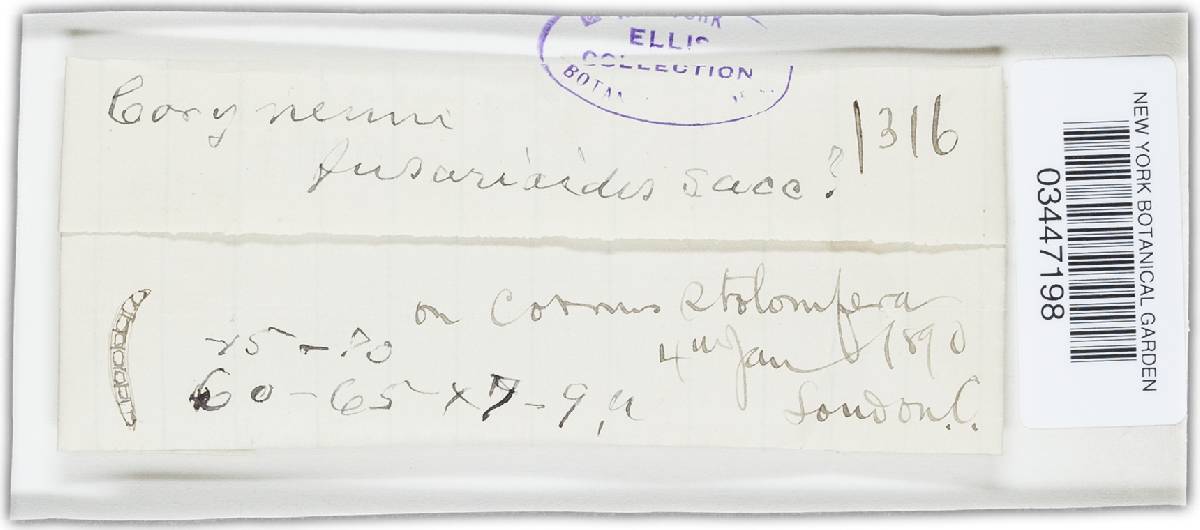 YORK
ELLIS
COLLECTION
BOTAN
Coryneum
fusarioides Sacc?
1316
on Cornus stolonifera
25-70
4th Jan 1890
60-65 x 7-9 µ
London.C.
NEW YORK BOTANICAL GARDEN
03447198